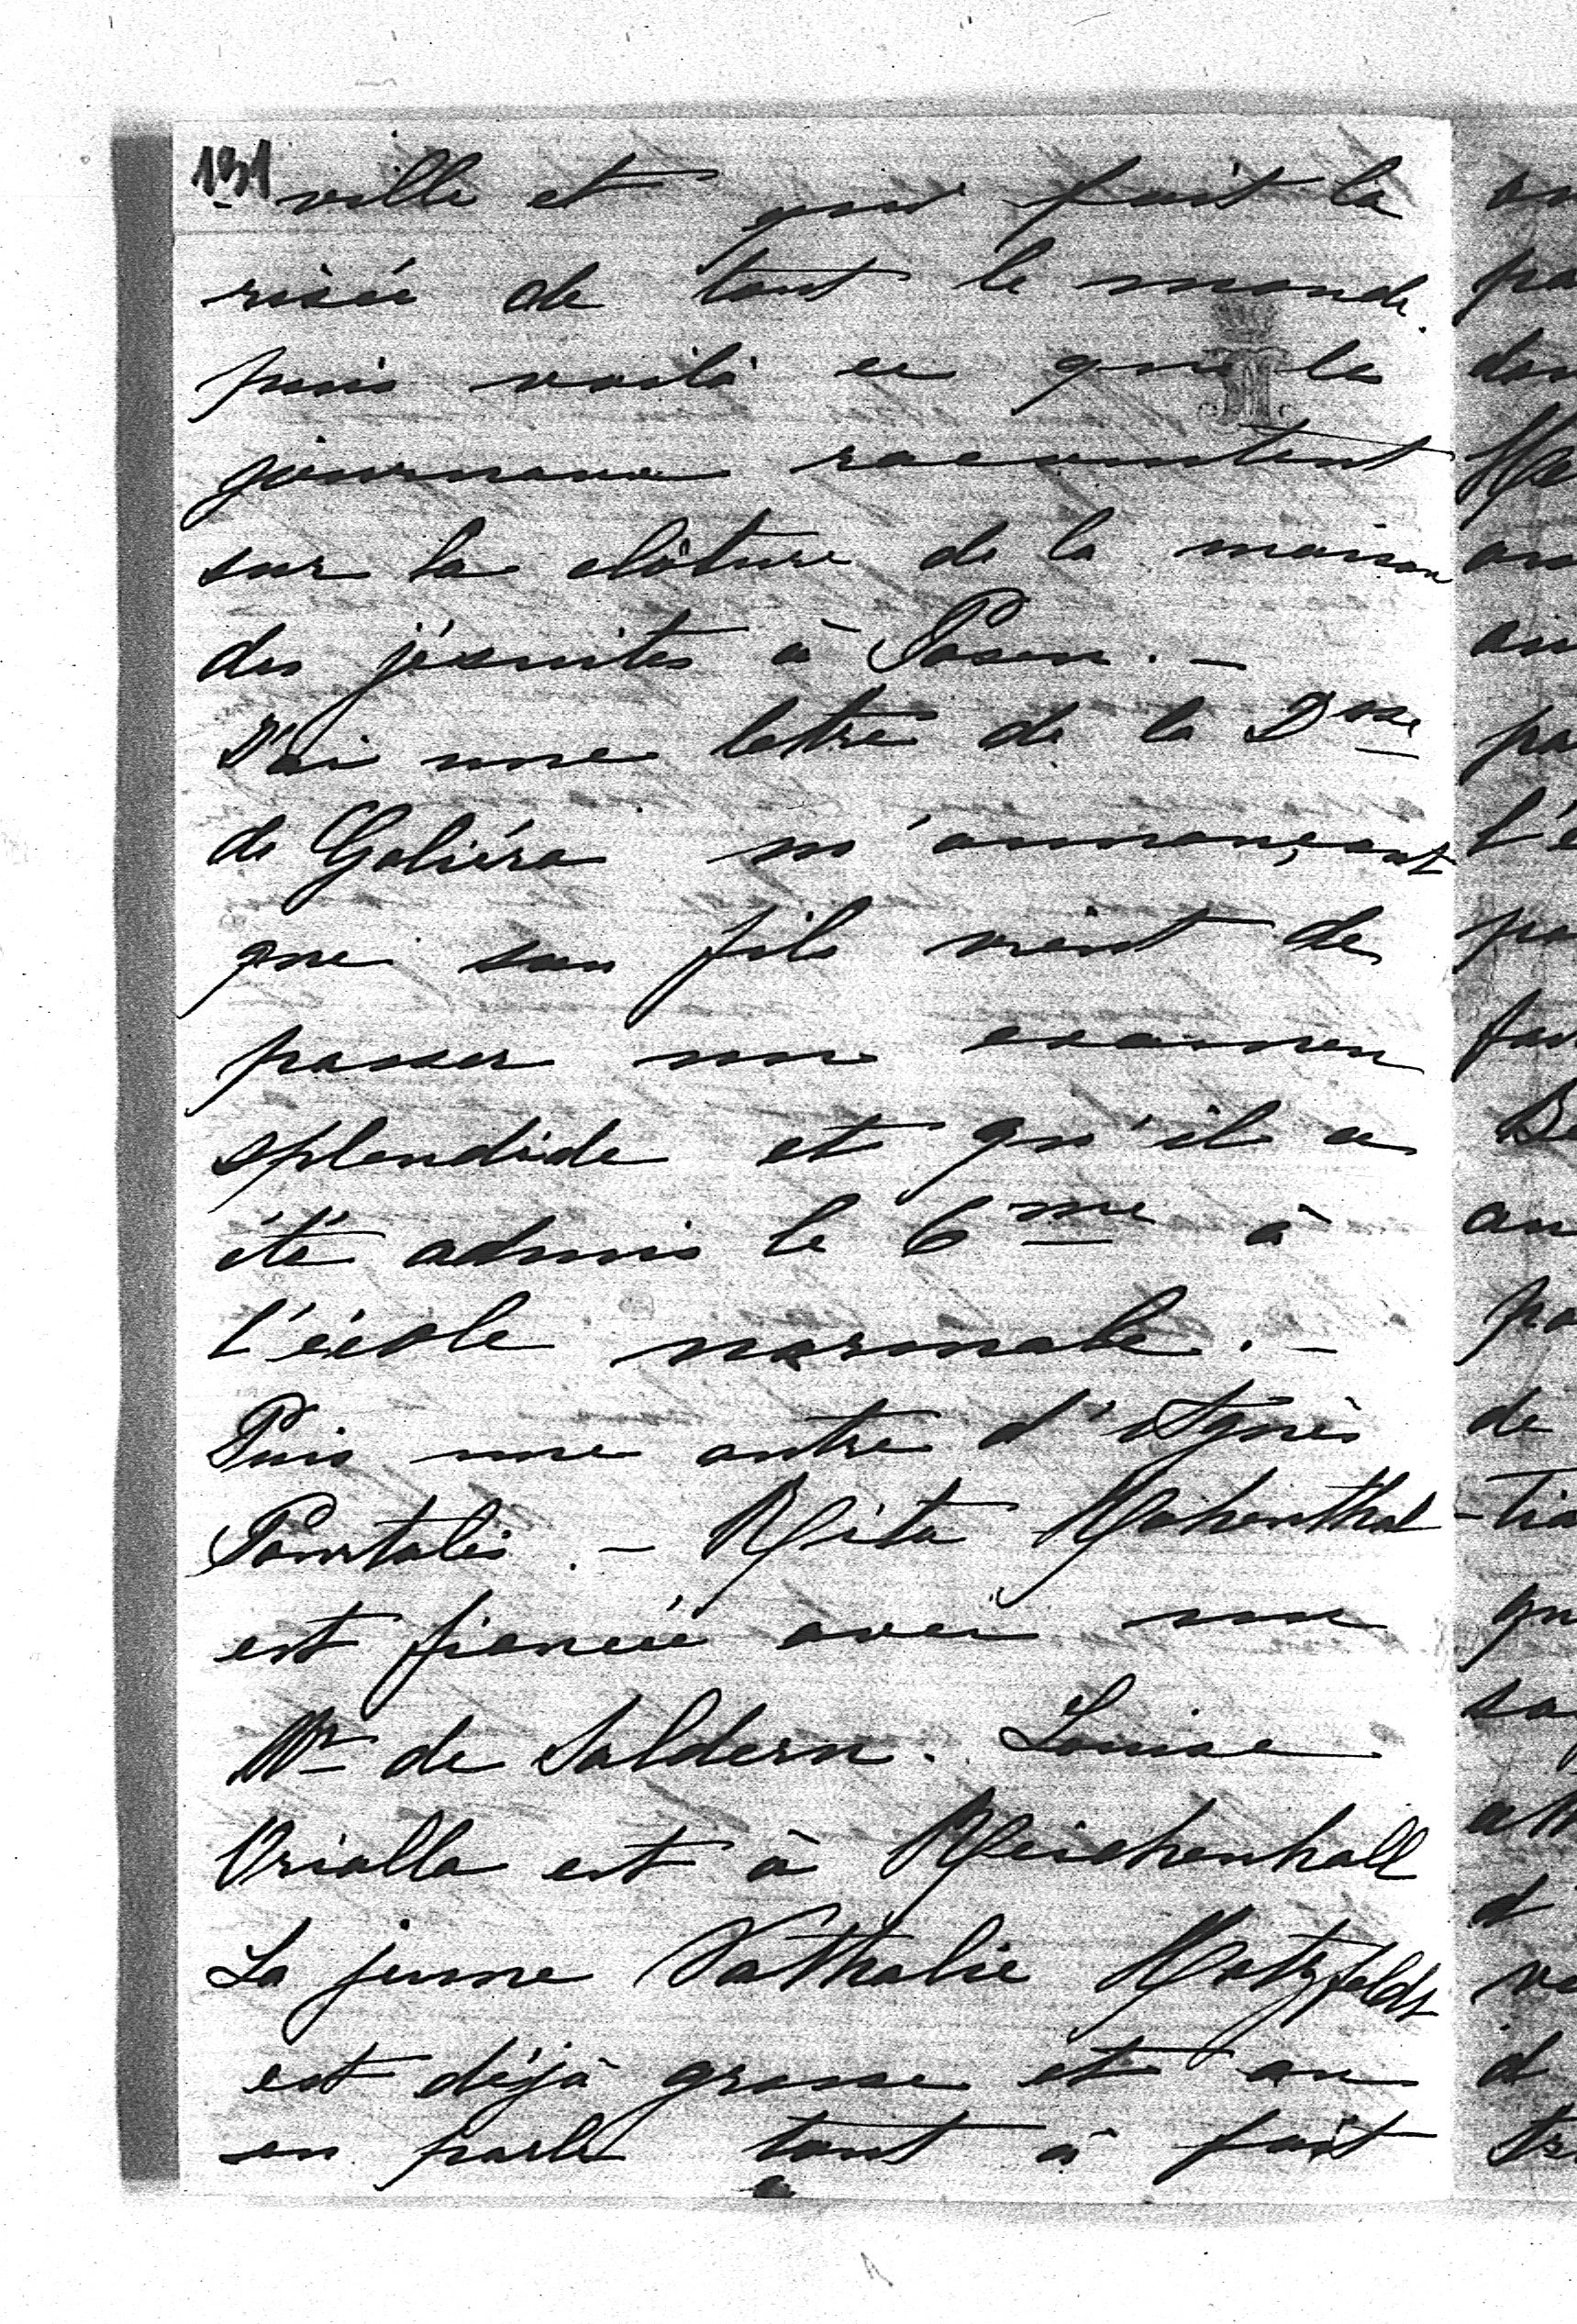 131
ville et qui fait la
risée de tout le monde.
puis voilà ce que les
journaux racontent
sur la clôture de la maison
des jésuites à Posen. –
J'ai une lettre de la Dsse
de Galiéra m'annonçant
que son fils vient de
passer un examen
splendide et qu'il a
été admis le 6me à
l'école normale. –
Puis une autre d'Agnès
Pourtalès. – Rita Hohenthal
est fiancée avec un
Mr de Saldern. Louise
Oriolla est à Reichenhall
La jeune Nathalie Hatzfeldt
est déjà grosse et on
en parle tout à fait